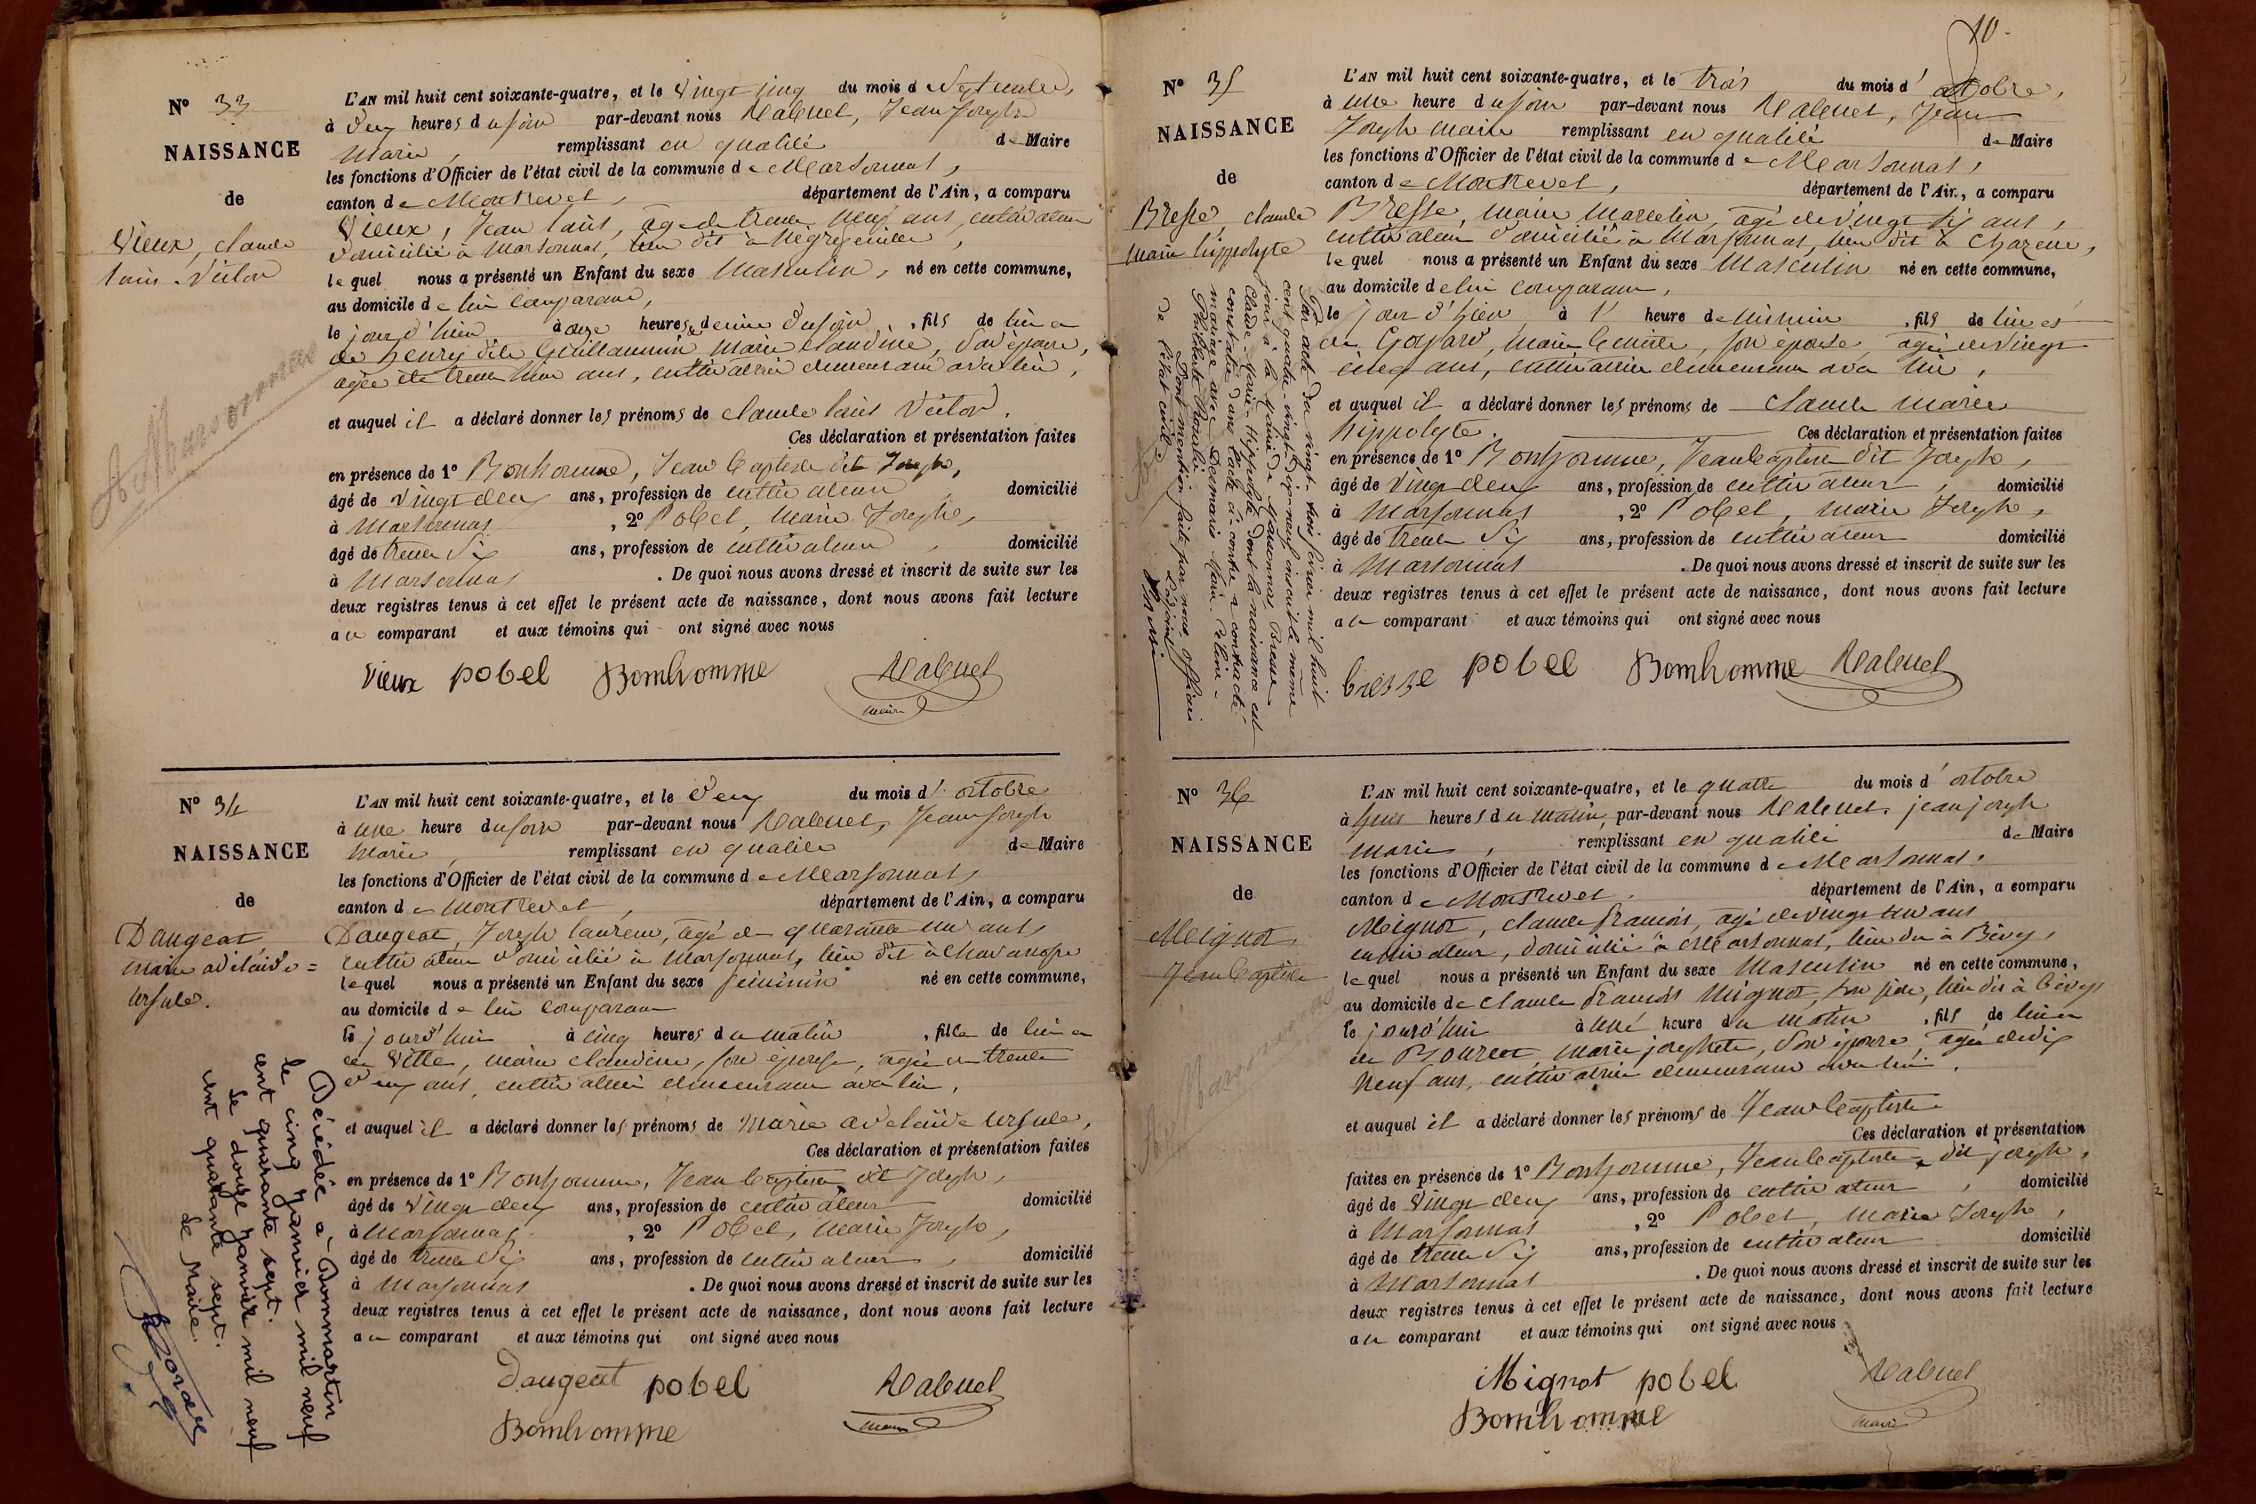 N° 33
NAISSANCE
de
Vieux, claude
louis Victor
de Marsonnas
L'AN mil huit cent soixante-quatre, et le vingt cinq du mois d septembre,
à deux heures du soir par-devant nous Rabuel, Jean Joseph
Marie, remplissant en qualité de Maire
les fonctions d'Officier de l'état civil de la commune de Marsonnas,
canton de Montrevel, département de l'Ain, a comparu
Vieux, Jean louis, agé de trente neuf ans, cultivateur
domicilié à Marsonnas, lieu dit à
lequel nous a présenté un Enfant du sexe Masculin, né en cette commune,
au domicile de lui comparant,
le jour d'hier à onze heures demie du soir, fils de lui et
de henry dite Guillaumin Marie claudine, son épouse,
agée de trente ans, cultivatrice demeurant avec lui,
et auquel il a déclaré donner les prénoms de claude louis Victor.
Ces déclaration et présentation faites
en présence de 1° Bonhomme, Jean Baptiste dit Joseph,
âgé de vingt deux ans, profession de cultivateur domicilié
à Marsonnas, 2° Pobel, Marie Joseph,
âgé de trente six ans, profession de cultivateur, domicilié
à Marsonnas. De quoi nous avons dressé et inscrit de suite sur les
deux registres tenus à cet effet le présent acte de naissance, dont nous avons fait lecture
au comparant et aux témoins qui ont signé avec nous
Vieux pobel Bomhomme Rabuel
maire
N° 34
NAISSANCE
de
Daugeat
marie adélaïde=
Ursule.
Décédée à Dommartin
le cinq janvier mil neuf
cent quarante sept.
Le douze janvier mil neuf
cent quarante sept.
Le Maire.
L'AN mil huit cent soixante-quatre, et le deux du mois d'octobre
à une heure du soir par-devant nous Rabuel, Jean Joseph
Marie, remplissant en qualité de Maire
les fonctions d'Officier de l'état civil de la commune de Marsonnas,
canton de Montrevel, département de l'Ain, a comparu
Daugeat, Joseph laurent, agé de quarante un ans,
cultivateur domicilié à Marsonnas, lieu dit à
lequel nous a présenté un Enfant du sexe féminin né en cette commune,
au domicile de lui comparant
le jourd'hui à cinq heures du matin, fille de lui et
de Ville, marie claudine, son épouse, agée de trente
deux ans, cultivatrice demeurant avec lui,
et auquel il a déclaré donner les prénoms de Marie adelaïde Ursule,
Ces déclaration et présentation faites
en présence de 1° Bonhomme, Jean Baptiste dit Joseph,
âgé de vingt deux ans, profession de cultivateur domicilié
à Marsonnas, 2° Pobel, Marie Joseph,
âgé de trente six ans, profession de cultivateur, domicilié
à Marsonnas. De quoi nous avons dressé et inscrit de suite sur les
deux registres tenus à cet effet le présent acte de naissance, dont nous avons fait lecture
au comparant et aux témoins qui ont signé avec nous
Daugeat pobel Rabuel
Bomhomme maire
10.
N° 35
NAISSANCE
de
Bresse, claude
marie hippolyte
Par acte du vingt-trois février mil huit
cent quatre-vingt-dix-neuf inscrit le même
jour à la mairie de Marsonnas Bresse
Claude Marie Hippolyte dont la naissance est
constatée dans l'acte ci-contre a contracté
mariage avec Demaria Marie Céline
Philiberte
Dont mention faite par nous officier
de l'état civil
L'AN mil huit cent soixante-quatre, et le trois du mois d'octobre,
à une heure du soir par-devant nous Rabuel, Jean
Joseph Marie remplissant en qualité de Maire
les fonctions d'Officier de l'état civil de la commune de Marsonnas,
canton de Montrevel, département de l'Ain, a comparu
Bresse, Marie Marcelin, agé de vingt six ans,
cultivateur domicilié à Marsonnas, lieu dit à Chazeux,
lequel nous a présenté un Enfant du sexe Masculin né en cette commune,
au domicile de lui comparant,
le jour d'hier à 1 heure de minuit, fils de lui et
de Goyard, marie Camille, son épouse, agée de vingt
cinq ans, cultivatrice demeurant avec lui,
et auquel il a déclaré donner les prénoms de claude marie
hippolyte. Ces déclaration et présentation faites
en présence de 1° Bonhomme, Jean Baptiste dit Joseph,
âgé de vingt deux ans, profession de cultivateur, domicilié
à Marsonnas, 2° Pobel, Marie Joseph,
âgé de trente six ans, profession de cultivateur domicilié
à Marsonnas. De quoi nous avons dressé et inscrit de suite sur les
deux registres tenus à cet effet le présent acte de naissance, dont nous avons fait lecture
au comparant et aux témoins qui ont signé avec nous
bresse pobel Bomhomme Rabuel
N° 36
NAISSANCE
de
Mignot,
Jean Baptiste
de Marsonnas
L'AN mil huit cent soixante-quatre, et le quatre du mois d'octobre
à huit heures du matin, par-devant nous Rabuel, jean joseph
marie, remplissant en qualité de Maire
les fonctions d'Officier de l'état civil de la commune de Marsonnas,
canton de Montrevel. département de l'Ain, a comparu
Mignot, claude françois, agé de vingt un ans
cultivateur, domicilié à Marsonnas, lieu dit à Bévey,
lequel nous a présenté un Enfant du sexe Masculin né en cette commune,
au domicile de claude françois Mignot, son père, lieu dit à bévey
le jourd'hui à une heure du matin, fils de lui et
de Bourcet, marie josephete, son épouse, agée de dix
neuf ans, cultivatrice demeurant avec lui.
et auquel il a déclaré donner les prénoms de Jean Baptiste
Ces déclaration et présentation
faites en présence de 1° Bonhomme, Jean Baptiste, dit joseph,
âgé de vingt deux ans, profession de cultivateur, domicilié
à Marsonnas, 2° Pobel, Marie Joseph,
âgé de trente six ans, profession de cultivateur domicilié
à Marsonnas. De quoi nous avons dressé et inscrit de suite sur les
deux registres tenus à cet effet le présent acte de naissance, dont nous avons fait lecture
au comparant et aux témoins qui ont signé avec nous
Mignot pobel Rabuel
Bomhomme maire